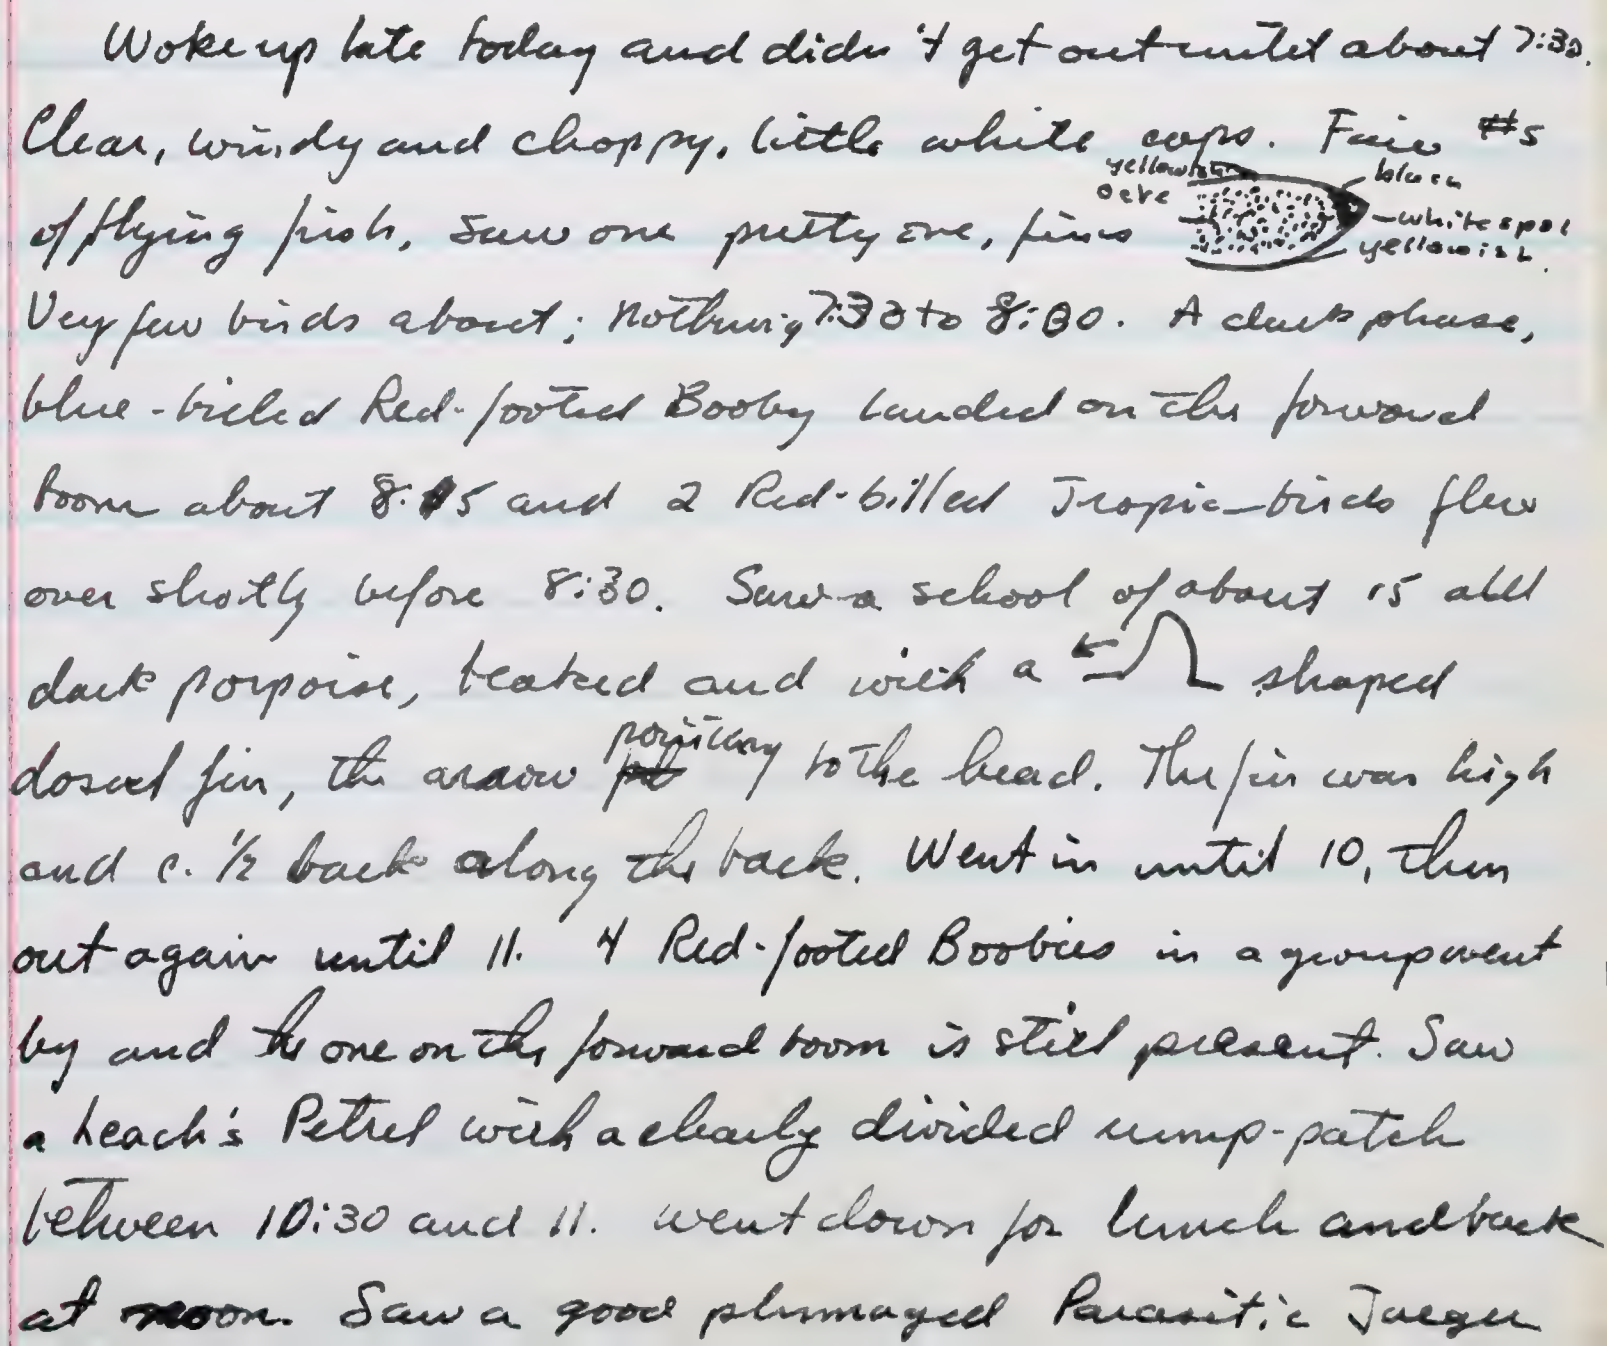 Woke up late today and didn't get out until about 7:30.
Clear, windy and choppy, little white caps. Fair #s
yellowish
black
ocre
of flying fish, saw one pretty one, fins
white spot
yellowish.
Very few birds about; nothing 7:30 to 8:00. A dark phase,
blue-billed Red-footed Booby landed on the forward
boom about 8:15 and 2 Red-billed Tropic-birds flew
over shotly before 8:30. Saw a school of about 15 all
dark porpoise, beaked and with a shaped
dosael fin, the arrow pointing to the head. The fin was high
and c. 1/2 back along the back. Went in until 10, then
out again until 11. 4 Red-footed Boobies in a group went
by and the one on the forward boom is still present. Saw
a Leach's Petrel with a clearly divided rump-patch
between 10:30 and 11. went down for lunch and back
at noon. Saw a good plumaged Parasitic Jaeger